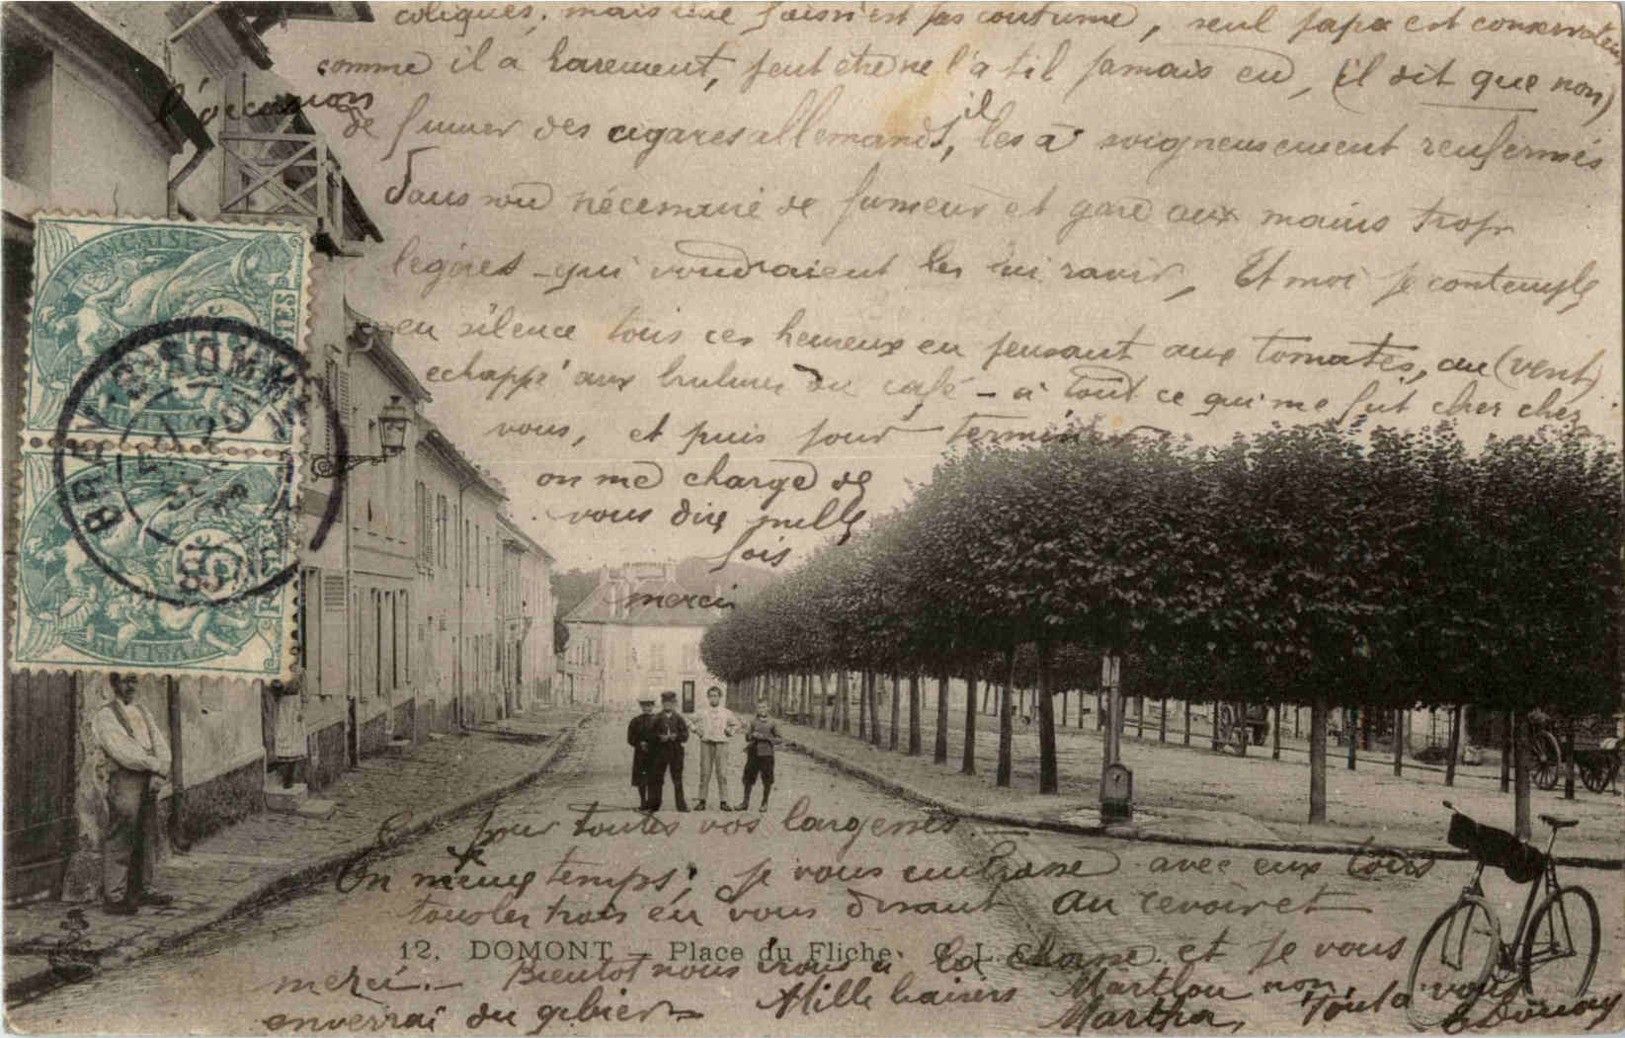 coliques, mais une fois n'est pas coutume, seul papa est conservateur
comme il a rarement, peut être ne l'a til jamais eu, (il dit que non)
l'occasion
de fumer des cigares allemands, il les a soigneusement renfermés
dans son nécessaire de fumeur et gare aux mains trop
légères qui voudraient les lui ravir, Et moi je contemple
en silence tous ces heureux en pensant aux tomates, au (vent)
echappé aux brulures du café - à tout ce qui me fut cher chez
vous, et puis pour terminer
on me charge de
vous dire mille
fois
merci
pour toutes vos largesses.
En même temps, je vous embrasse avec eux tous
tous les trois en vous disant au revoir et
12. DOMONT — Place du Fliche. C. L. C.
la chasse et je vous
merci. - Bientot nous irons à
enverrai du gibier Mille baisers Marthou non
Martha, Tout à vous
FRANÇAISE
POSTES
BREVAL
5
05